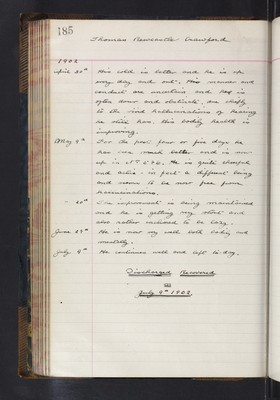 185
Thomas Newcastle Crawford
1902
April 20th His cold is better and he is up
every day and out. His manner and
conduct are uncertain and he is
often dour and obstinate, due chiefly
to the vivid hallucinations of hearing
he still has. His bodily health is
improving.
May 9th For the past four or five days he
has been much better and is now
up in He is quite cheerful
and active - in fact a different being
and seems to be now free from
hallucinations.
" 20th The improvement is being maintained
and he is getting very stout and
also rather inclined to be lazy.
June 23rd He is now very well both bodily and
mentally.
July 9th He continues well and left to-day.
Discharged Recovered
on
July 9th 1902.